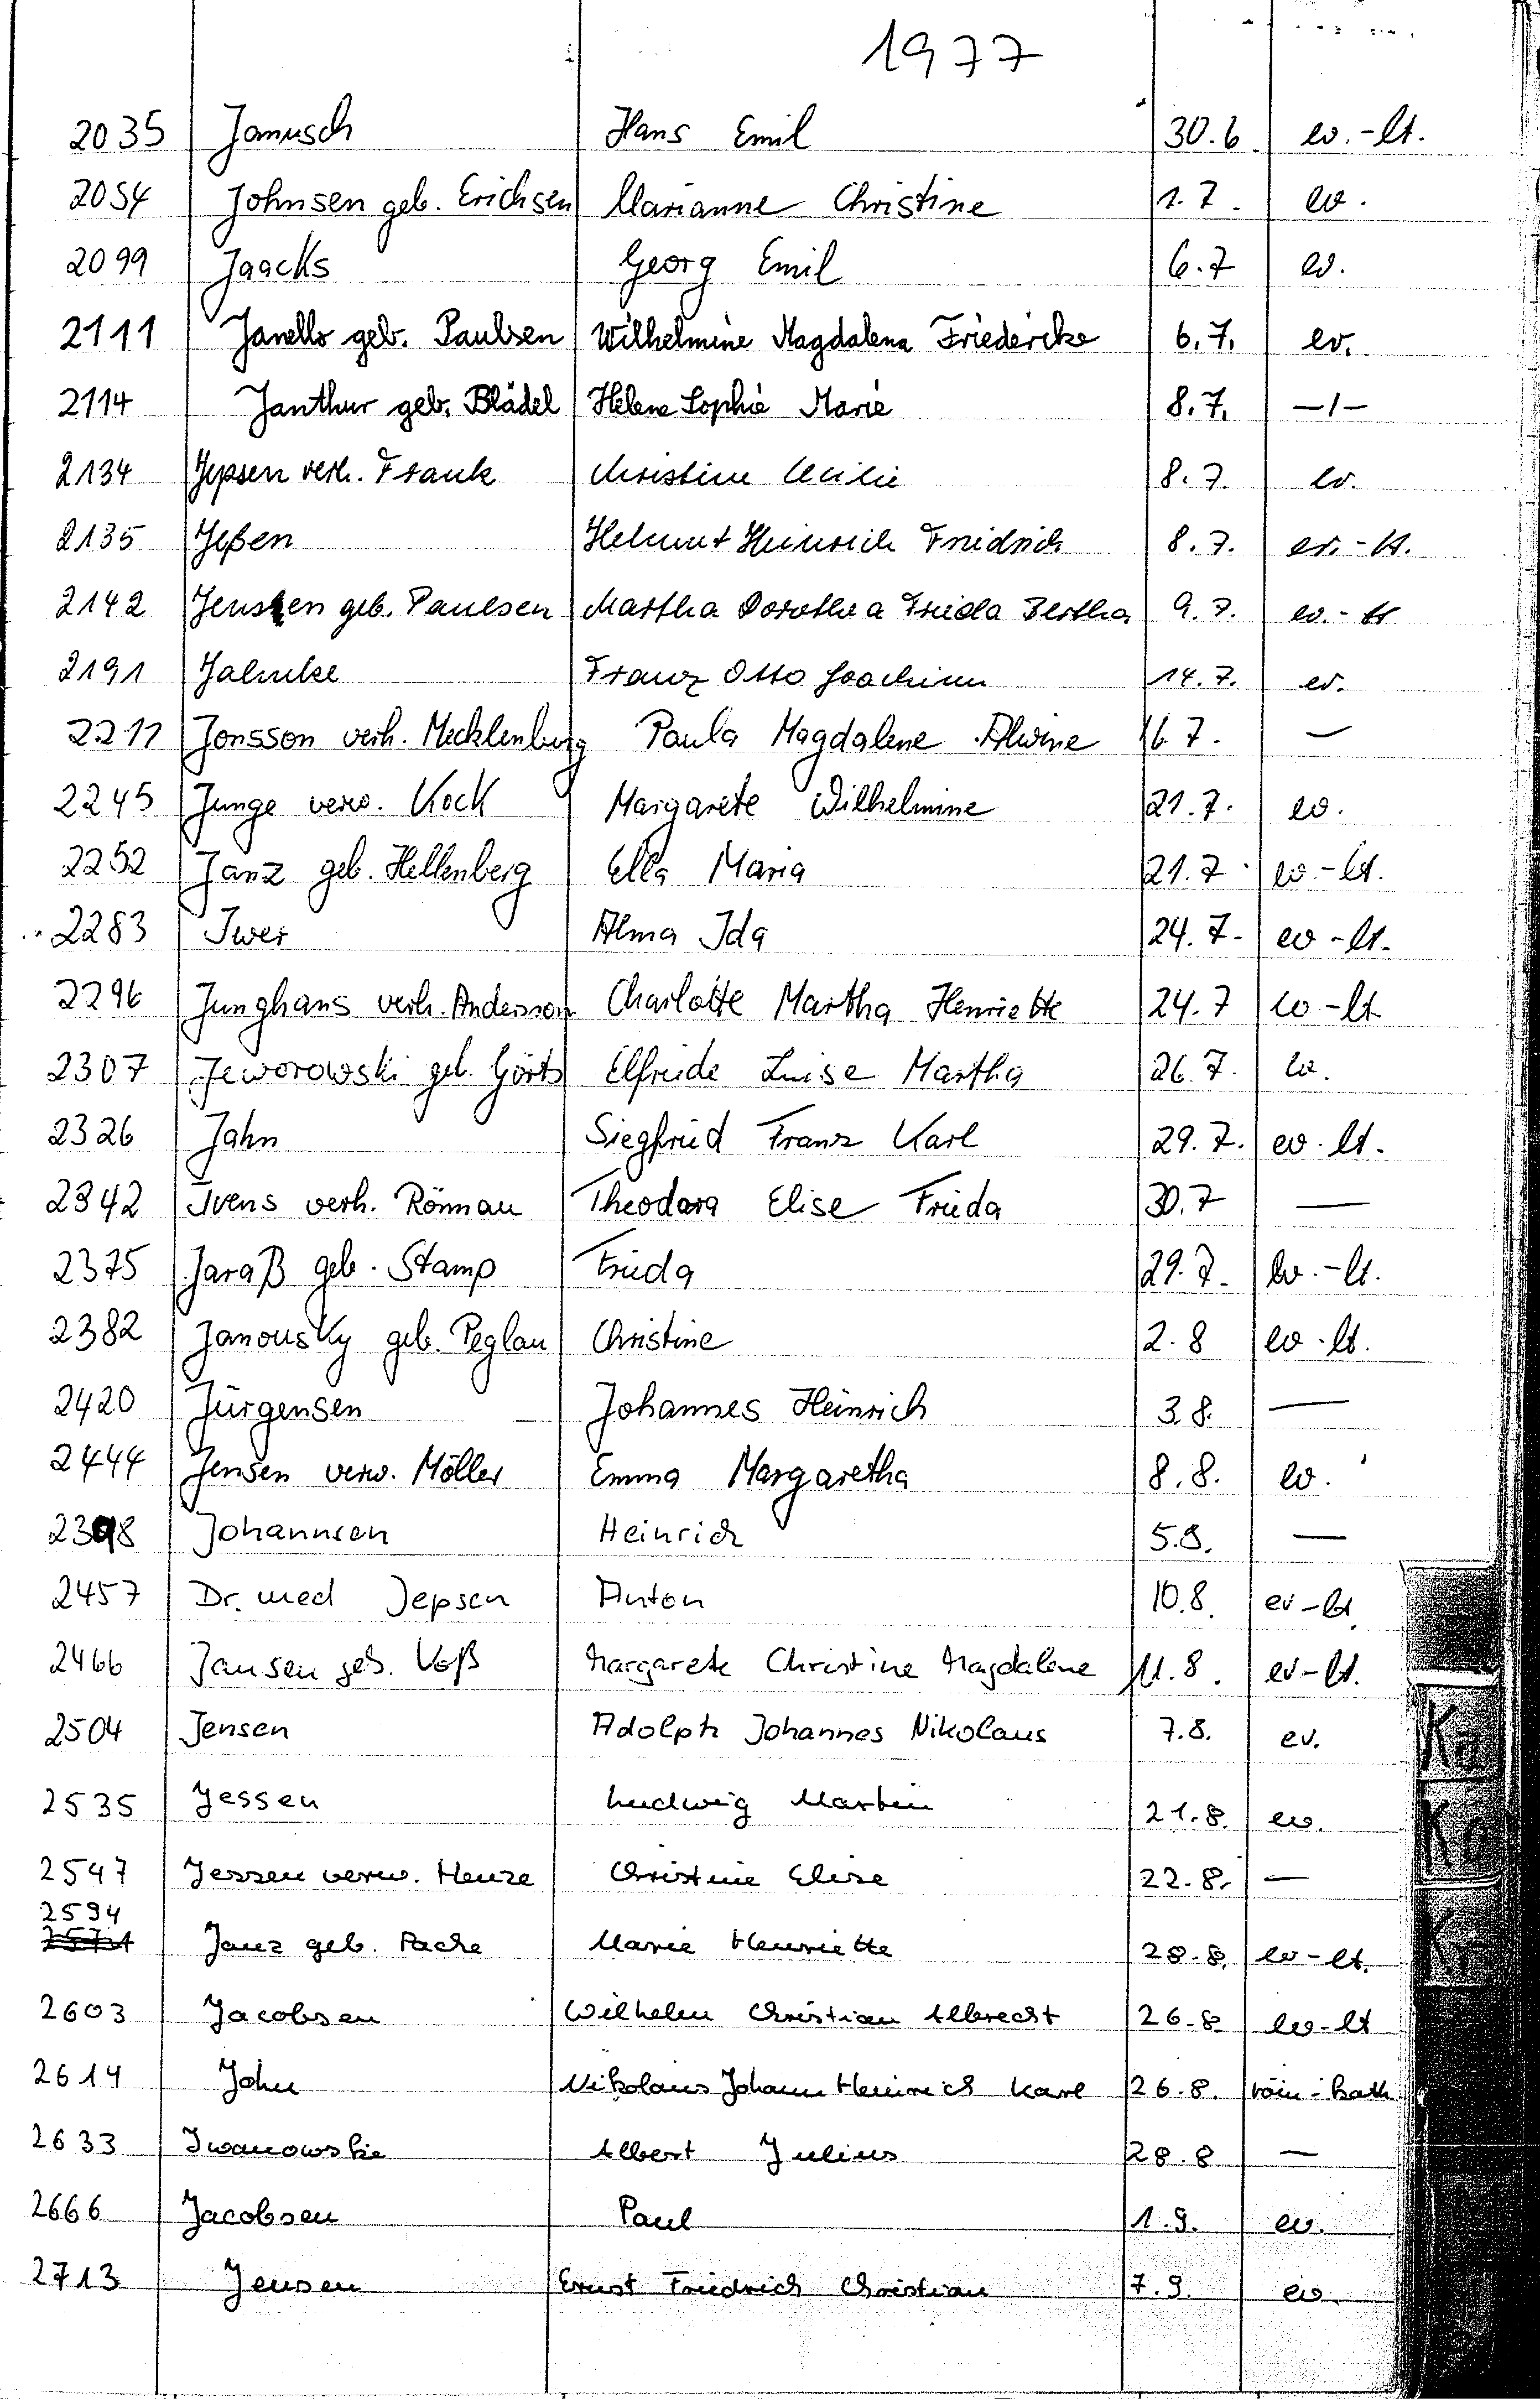 1977
2035 Janusch Hans Emil 30.6 ev.-lt.
2054 Johnsen geb. Erichsen Marianne Christine 1.7. ev.
2099 Jaacks Georg Emil 6.7 ev.
2111 Janello geb. Paulsen Wilhelmine Magdalena Friedericke 6.7. ev.
2114 Janthur geb. Blädel Helene Sophie Marie 8.7. -/-
2134 Jepsen verh. Frank Christine Cecilie 8.7. ev.
2135 Jeßen Helmut Heinrich Friedrich 8.7. ev.-lt.
2142 Jensen geb. Paulsen Martha Dorothea Frieda Bertha 9.7. ev.-lt
2191 Jahnke Franz Otto Joachim 14.7. ev.
2211 Jonsson verh. Mecklenburg Paula Magdalene Alwine 16.7. —
2245 Junge verw. Kock Margarete Wilhelmine 21.7. ev.
2252 Janz geb. Hellenberg Ella Maria 21.7. ev.-lt.
2283 Iwer Alma Ida 24.7. ev-lt.
2296 Junghans verh. Andersson Charlotte Martha Henriette 24.7 ev-lt
2307 Jeworowski geb. Görts Elfriede Luise Martha 26.7. ev.
2326 Jahn Siegfried Franz Karl 29.7. ev.lt.
2342 Ivens verh. Rönnau Theodora Elise Frieda 30.7 —
2375 Jaraß geb. Stamp Frieda 29.7. ev.-lt.
2382 Janousky geb. Peglau Christine 2.8 ev-lt.
2420 Jürgensen Johannes Heinrich 3.8. —
2444 Jensen verw. Möller Emma Margaretha 8.8. ev.
2398 Johannsen Heinrich 5.8. —
2457 Dr. med Jepsen Anton 10.8. ev-lt.
2466 Jansen geb. Voß Margarete Christine Magdalene 11.8. ev-lt.
2504 Jensen Adolph Johannes Nikolaus 7.8. ev.
2535 Jessen Ludwig Martin 21.8. ev.
2547 Jessen verw. Henze Christine Elise 22.8. —
2594
2571 Janz geb. Pache Marie Henriette 28.8. ev-lt.
2603 Jacobsen Wilhelm Christian Albrecht 26.8. ev-lt
2614 John Nikolaus Johann Heinrich Karl 26.8. röm-kath.
2633 Iwanowski Albert Julius 28.8 —
2666 Jacobsen Paul 1.9. ev.
2713 Jensen Ernst Friedrich Christian 7.9. ev.
Ka
Ko
Kr